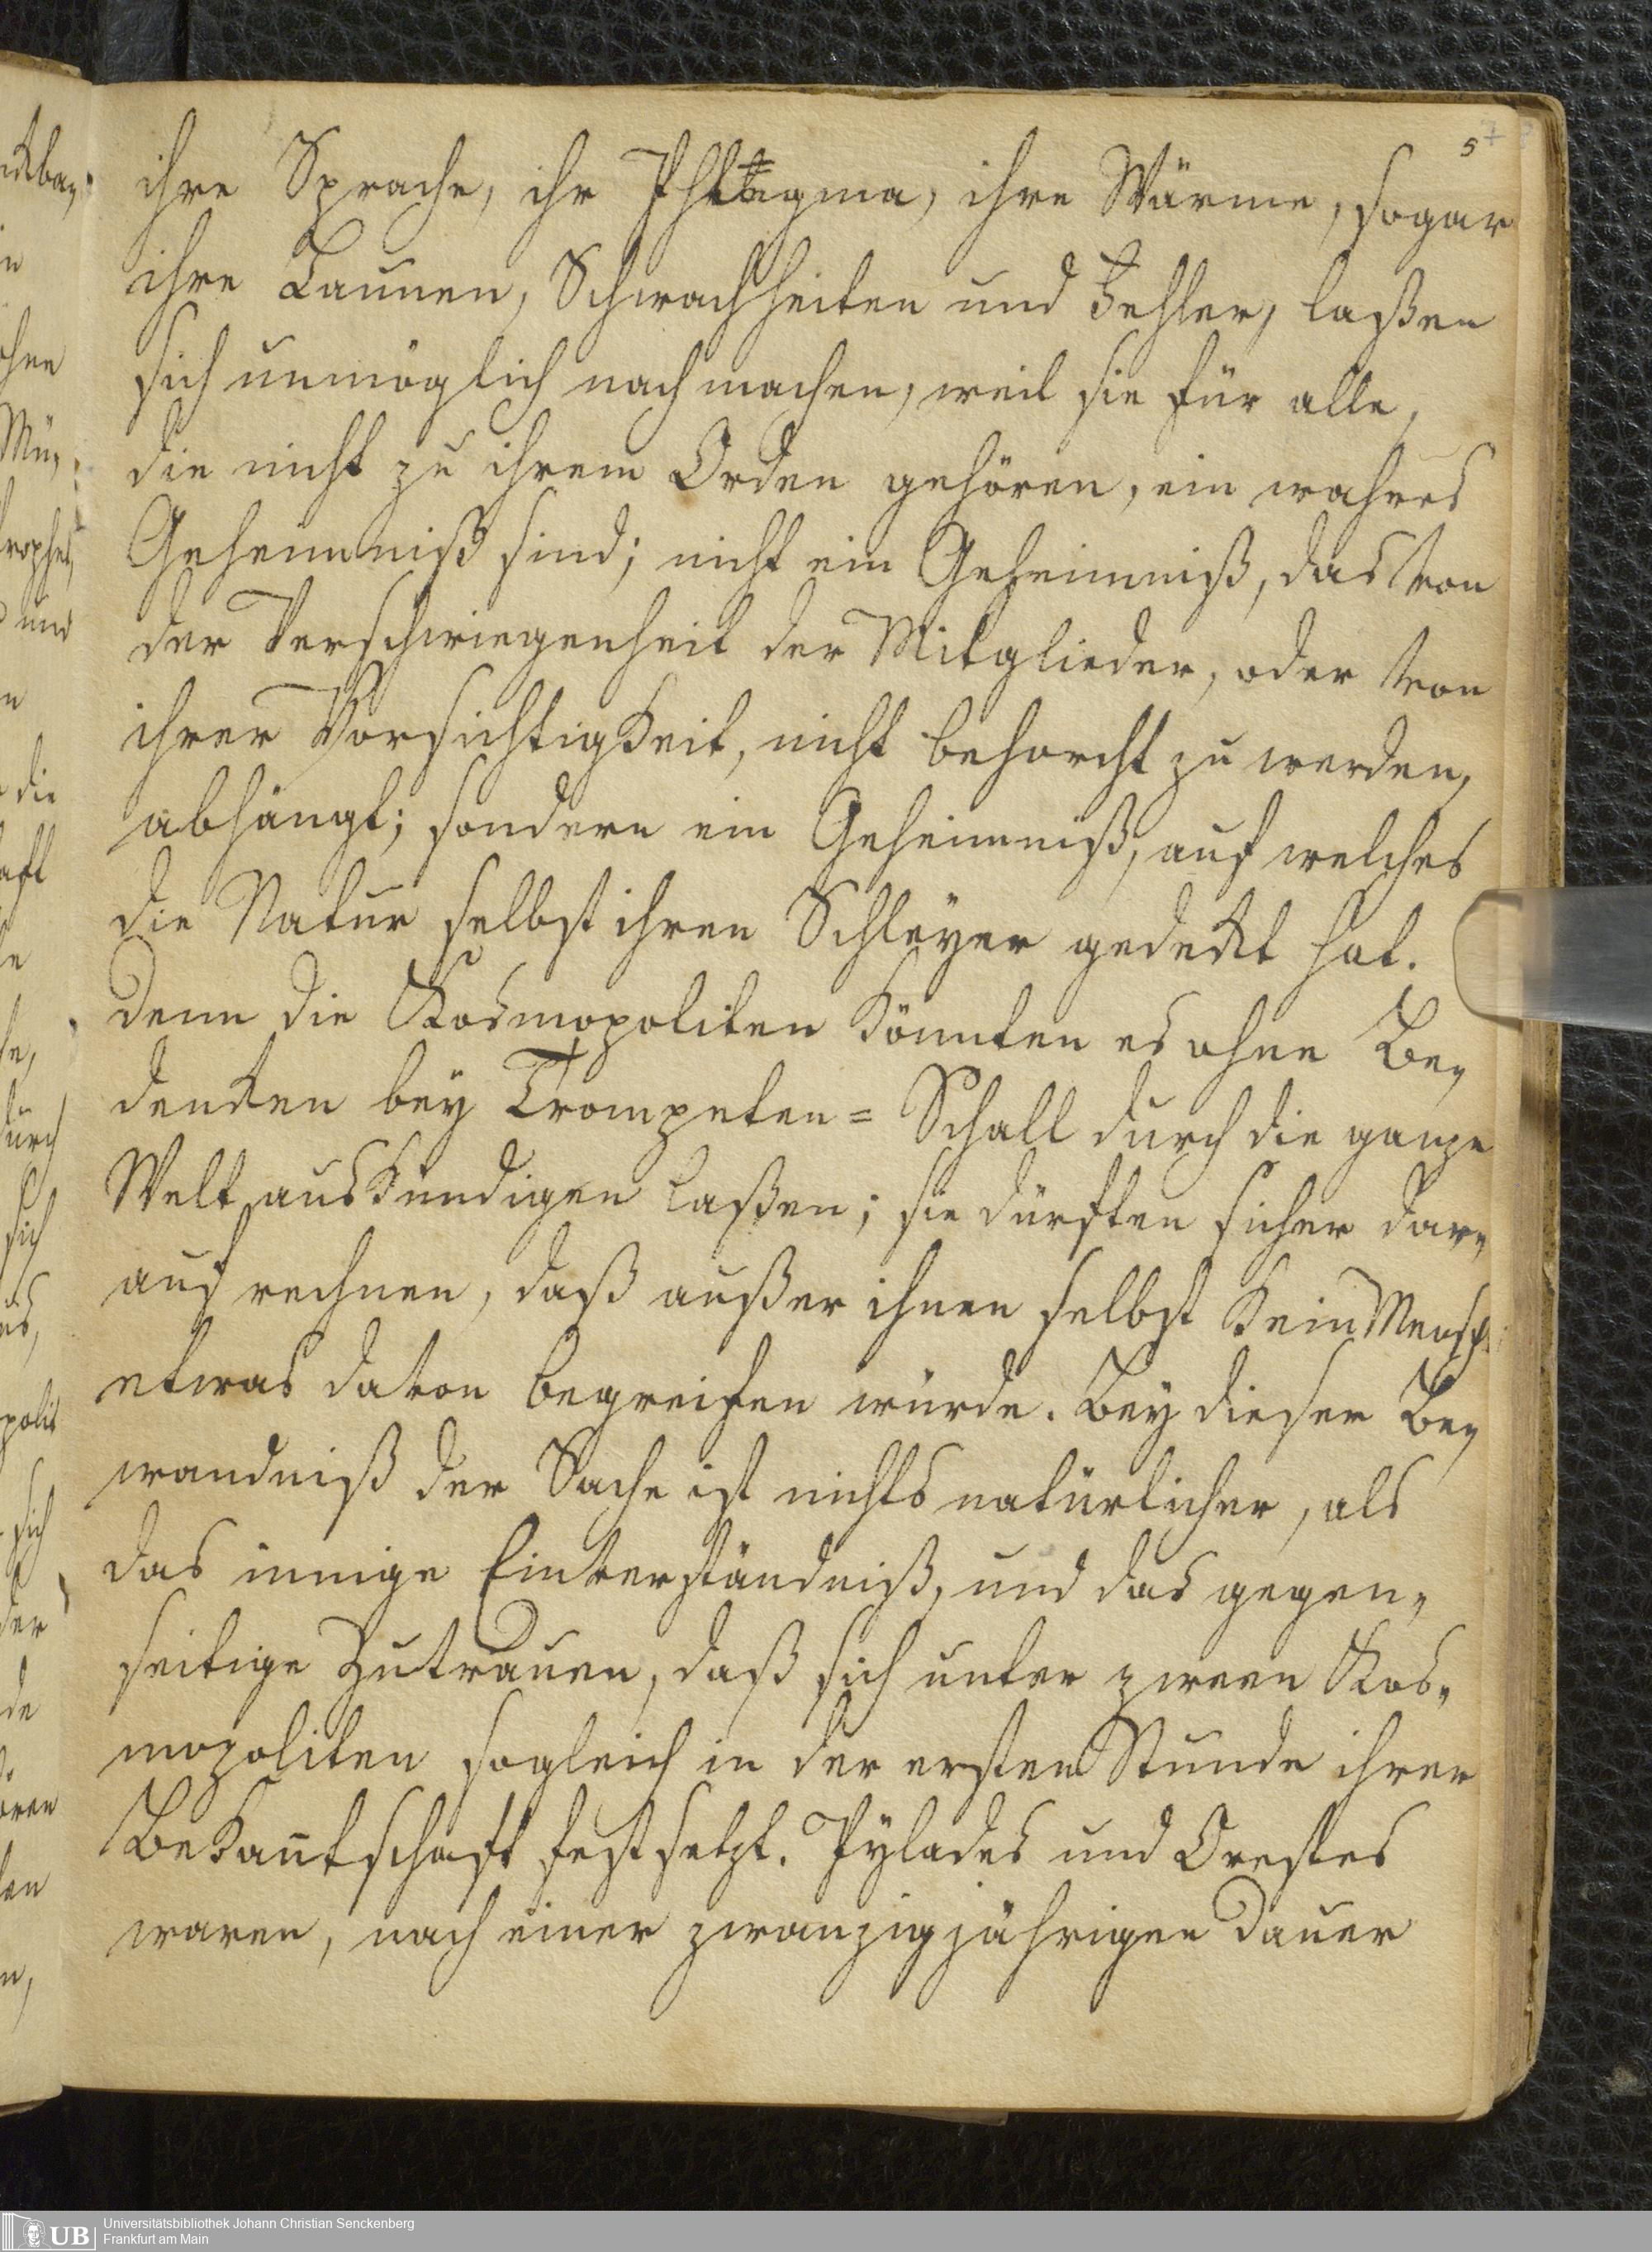 5
ihre Sprache, ihr Phlegma, ihre Wärme, sogar
ihre Launen, Schwachheiten und Fehler, laßen
sich unmöglich nach machen, weil sie für alle,
die nicht zu ihrem Orden gehören, ein wahres
Geheimniß sind; nicht ein Geheimniß, das von
der Verschwiegenheit der Mitglieder, oder von
ihrer Vorsichtigkeit, nicht behorcht zu werden,
abhängt; sondern ein Geheimniß, auf welches
die Natur selbst ihren Schleyer gedekt hat.
Denn die Kosmopoliten könnten es ohne Be„
denken bey Trompeten= Schall durch die ganze
Welt auskündigen laßen; sie dürften sicher dar„
auf rechnen, daß außer ihnen selbst kein Mensch
etwas davon begreifen würde. Bey dieser Be„
wandniß der Sache ist nichts natürlicher, als
das innige Einverständniß, und das gegen„
seitige Zutrauen, daß sich unter zween Kos„
mopoliten sogleich in der ersten Stunde ihrer
Bekan̄tschaft fest setzt. Pylades und Orestes
waren, nach einer zwanzigjährigen Dauer
UB
Universitätsbibliothek Johann Christian Senckenberg
Frankfurt am Main